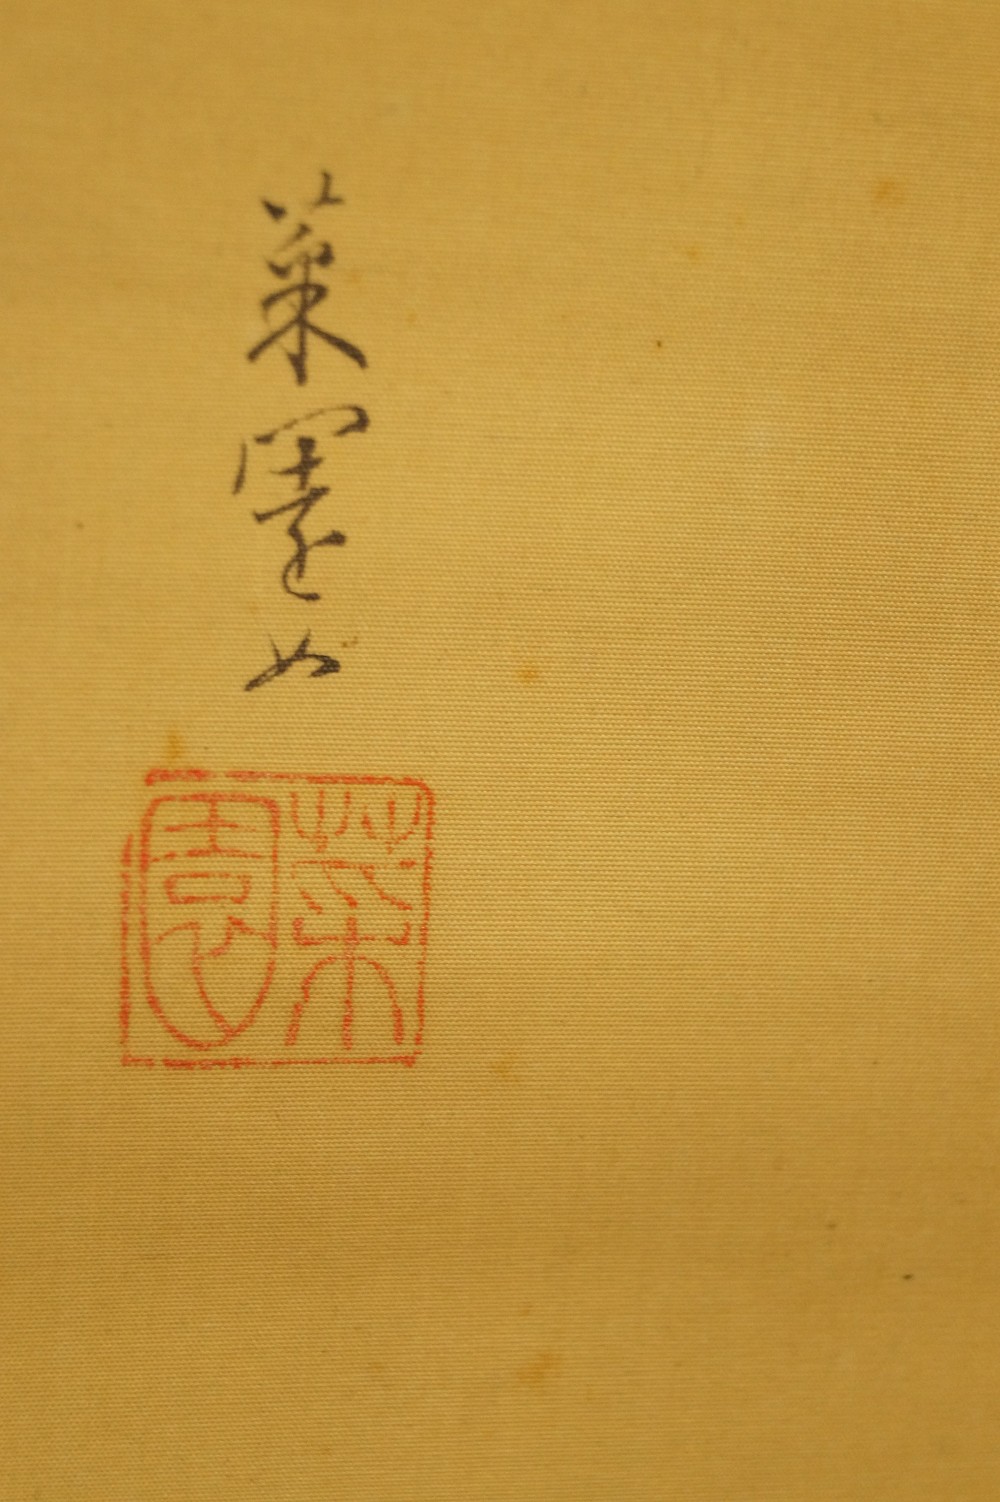 菜園
菜園